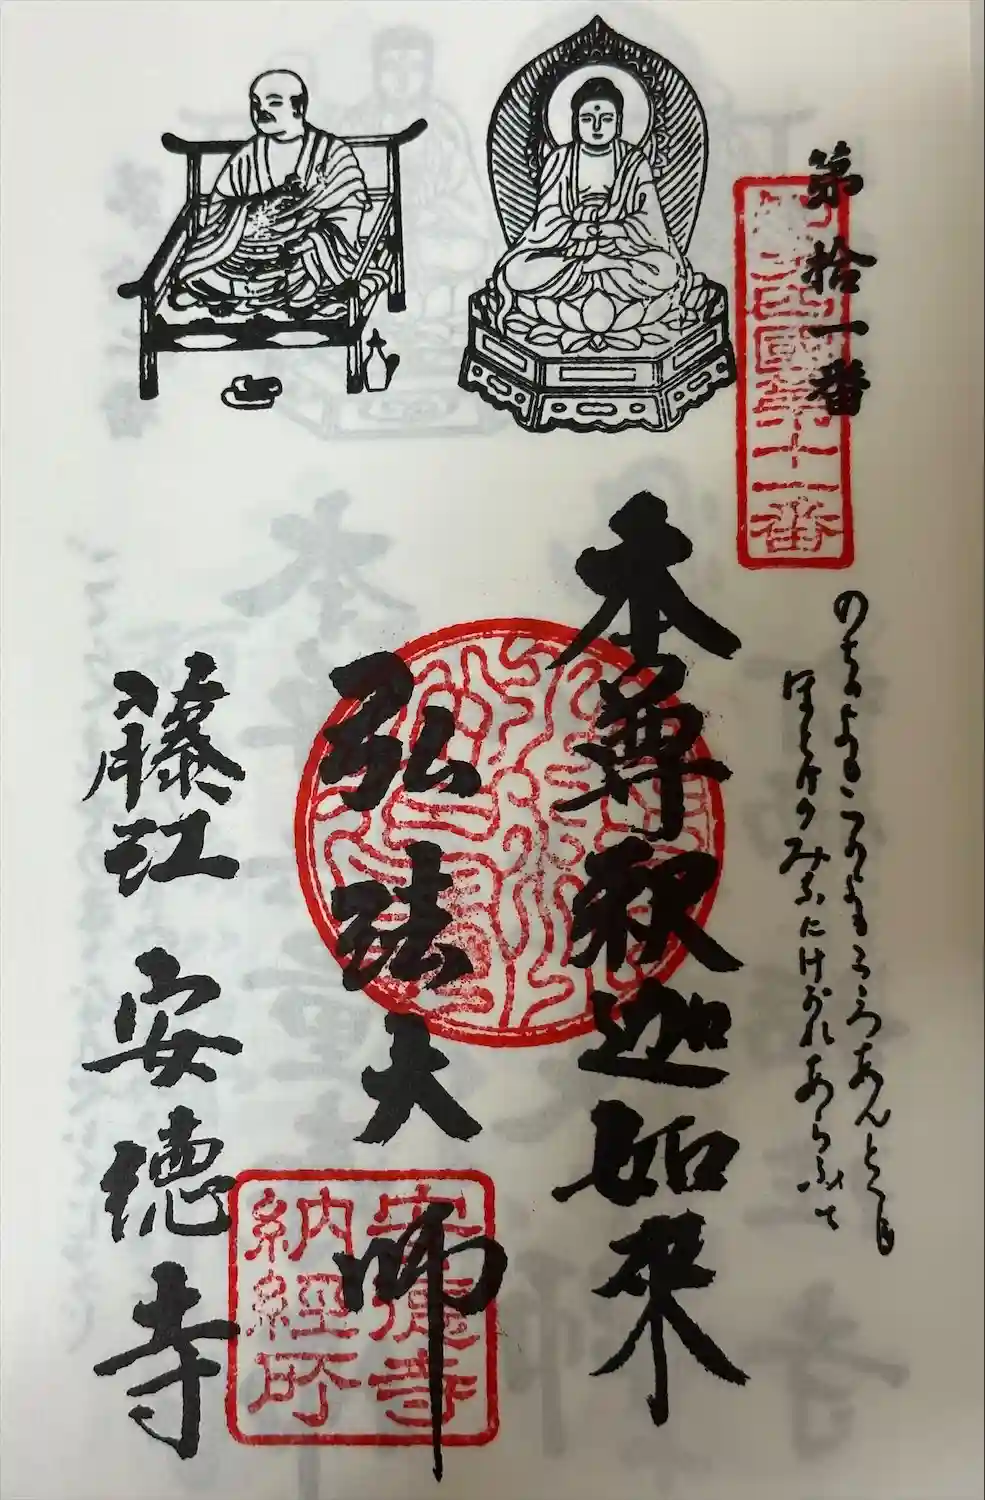 第拾一番
四國第十一番
のちのよもこのよもこころあんとくし
ほとけのみなにけがれあらふて
本尊釈迦如来
弘法大師
藤江 安徳寺
安徳寺
納経所